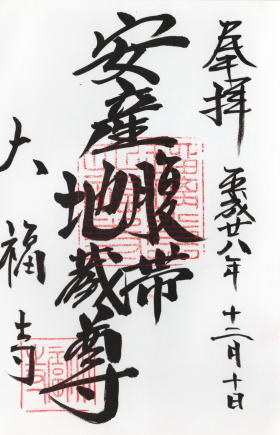 奉拝
平成廿八年 十二月十日
安産
腹帯
地蔵尊
大福寺